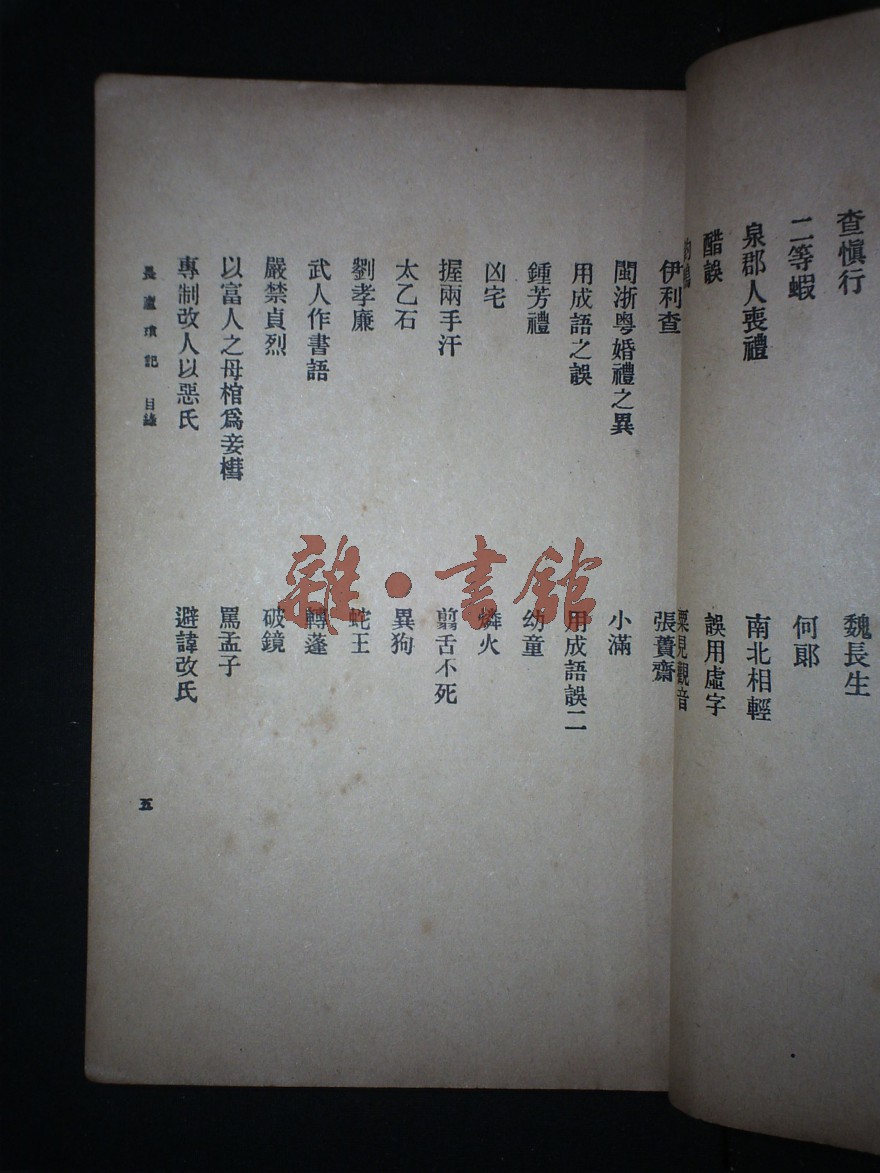 查愼行
魏長生
二等蝦
何郞
泉郡人喪禮
南北相輕
醋誤
誤用虛字
見觀音
伊利查
張蕢齋
閩浙粵婚禮之異
小滿
用成語之誤
用成語誤二
鍾芳禮
幼童
凶宅
燐火
握兩手汗
翦舌不死
太乙石
異狗
劉孝廉
蛇王
武人作書語
轉蓬
嚴禁貞烈
破鏡
以富人之母棺爲妾槥
罵孟子
專制改人以惡氏
避諱改氏
畏廬瑣記 目錄
五
雜·書館